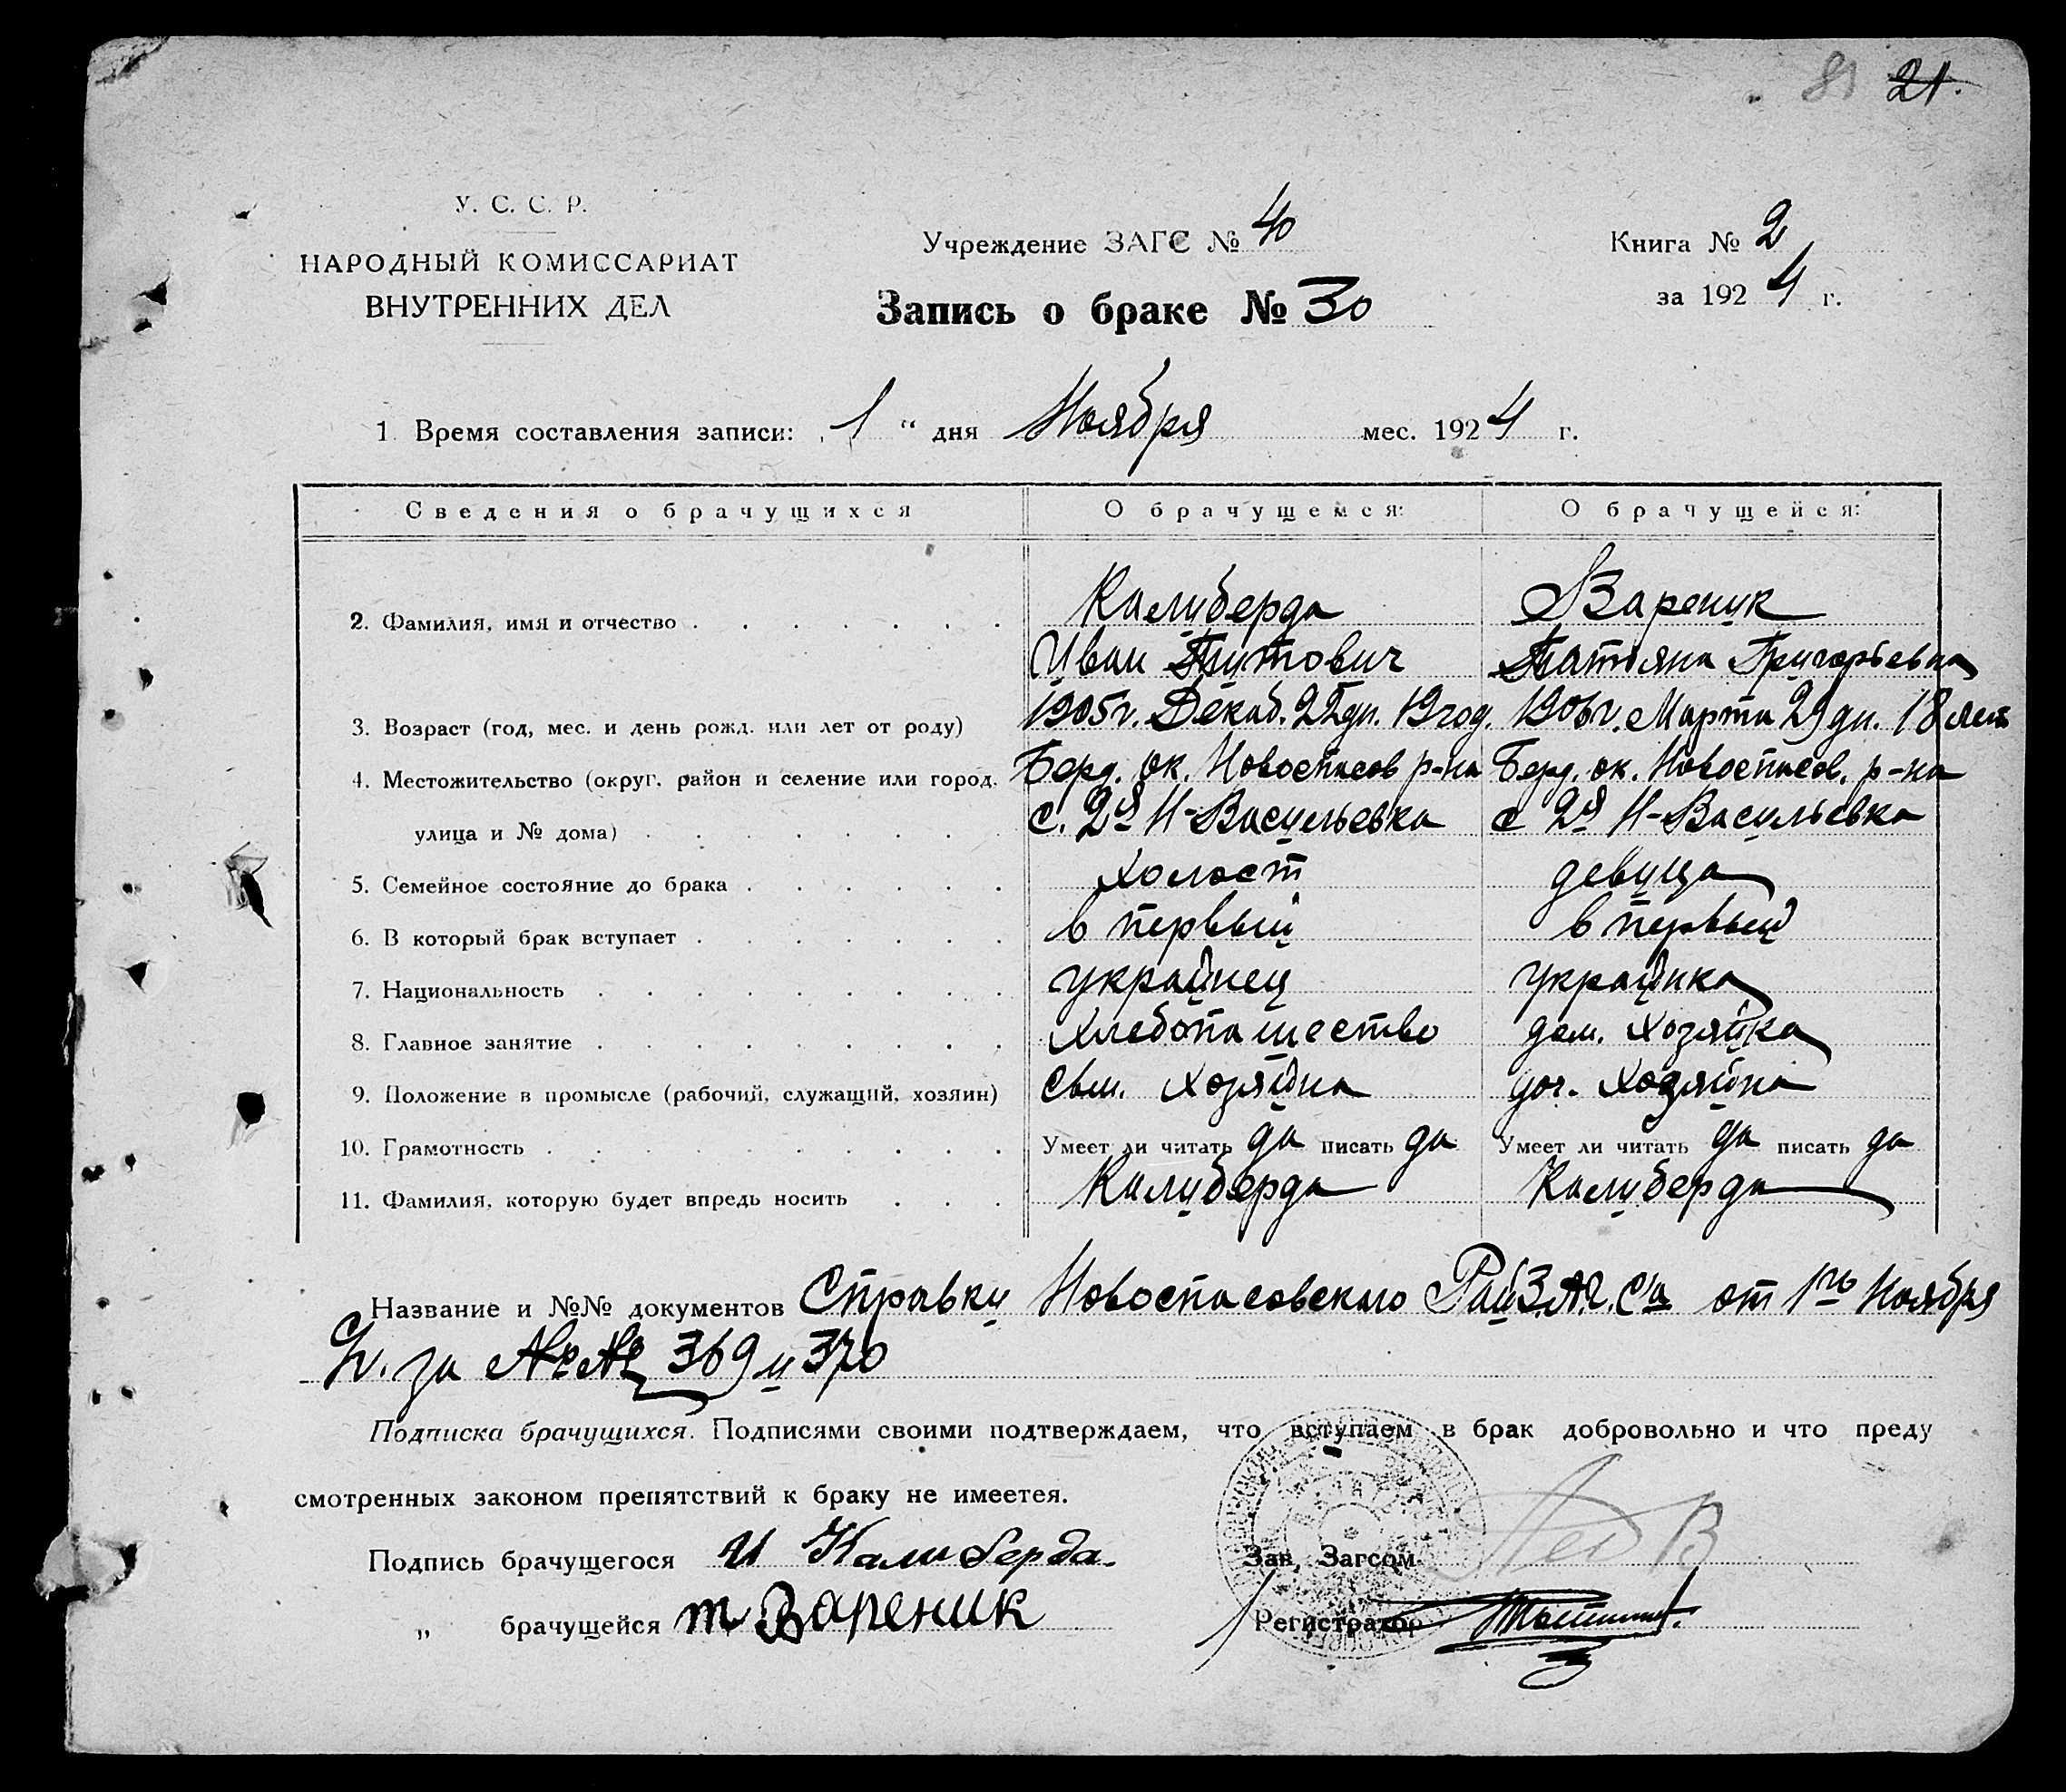 81 21.
У. С. С. Р.
НАРОДНЫЙ КОМИССАРИАТ
ВНУТРЕННИХ ДЕЛ
Учреждение ЗАГС № 40
Запись о браке № 30
Книга № 2
за 1924 г.
1 Время составления записи: 1 " дня Ноября мес. 1924 г.
Сведения о брачущихся О брачущемся: О брачущейся:
2. Фамилия, имя и отчество Калиберда Вареник
Иван Титович Татьяна Григорьевна
3. Возраст (год, мес. и день рожд. или лет от роду) 1905г. Декаб. 22дн. 19год. 1906г. Марта 29дн. 18 лет
4. Местожительство (округ, район и селение или город, Берд. ок. Новоспасов р-на Берд. ок. Новоспасов. р-на
улица и № дома) с. 2я Н-Васильевка с 2я Н-Васильевка
5. Семейное состояние до брака холост девица
6. В который брак вступает в первый в первый
7. Национальность украйнец украйнка
8. Главное занятие хлебопашество дом. хозяйка
9. Положение в промысле (рабочий, служащий, хозяин) сын. хозяйна доч. хозяйна
10. Грамотность Умеет ли читать да писать да Умеет ли читать да писать да
11. Фамилия, которую будет впредь носить Калиберда Калиберда
Название и №№ документов Справки Новоспасовского Рай З.А.Г.С'а от 1го Ноября
с/г. за №№ 369 и 370
Подписка брачущихся. Подписями своими подтверждаем, что вступаем в брак добровольно и что преду
смотренных законом препятствий к браку не имеетея.
Подпись брачущегося И Калиберда.
„ брачущейся т Вареник
Зав. Загсом
Регистратор